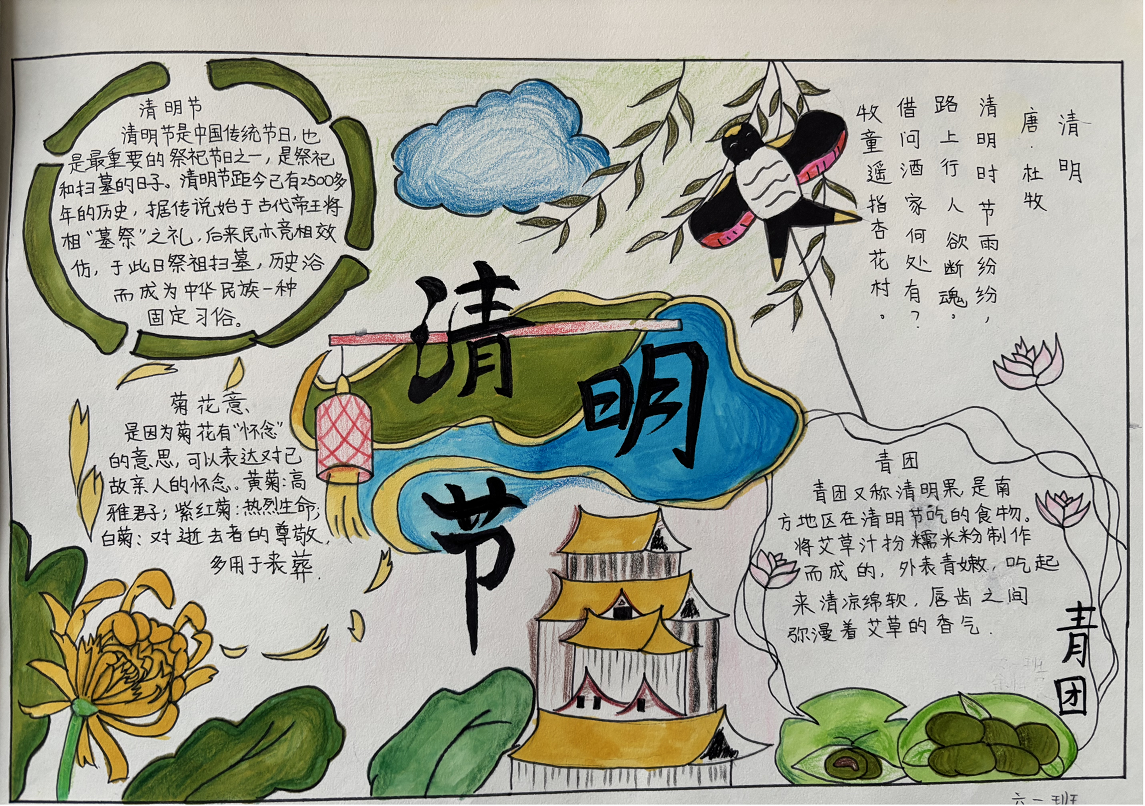 清明节
清明节是中国传统节日,也
是最重要的祭祀节日之一,是祭祀
和扫墓的日子。清明节距今已有2500多
年的历史,据传说始于古代帝王将
相“墓祭”之礼,后来民亦竞相效
仿,于此日祭祖扫墓,历史沿
而成为中华民族一种
固定习俗。
菊花意
是因为菊花有“怀念”
的意思,可以表达对已
故亲人的怀念。黄菊:高
雅君子;紫红菊:热烈生命;
白菊:对逝去者的尊敬,
多用于丧葬.
清
明
节
清明
唐·杜牧
清明时节雨纷纷,
路上行人欲断魂。
借问酒家何处有?
牧童遥指杏花村。
青团
青团又称清明果,是南
方地区在清明节吃的食物。
将艾草汁扮糯米粉制作
而成的,外表青嫩,吃起
来清凉绵软,唇齿之间
弥漫着艾草的香气.
青团
六一班